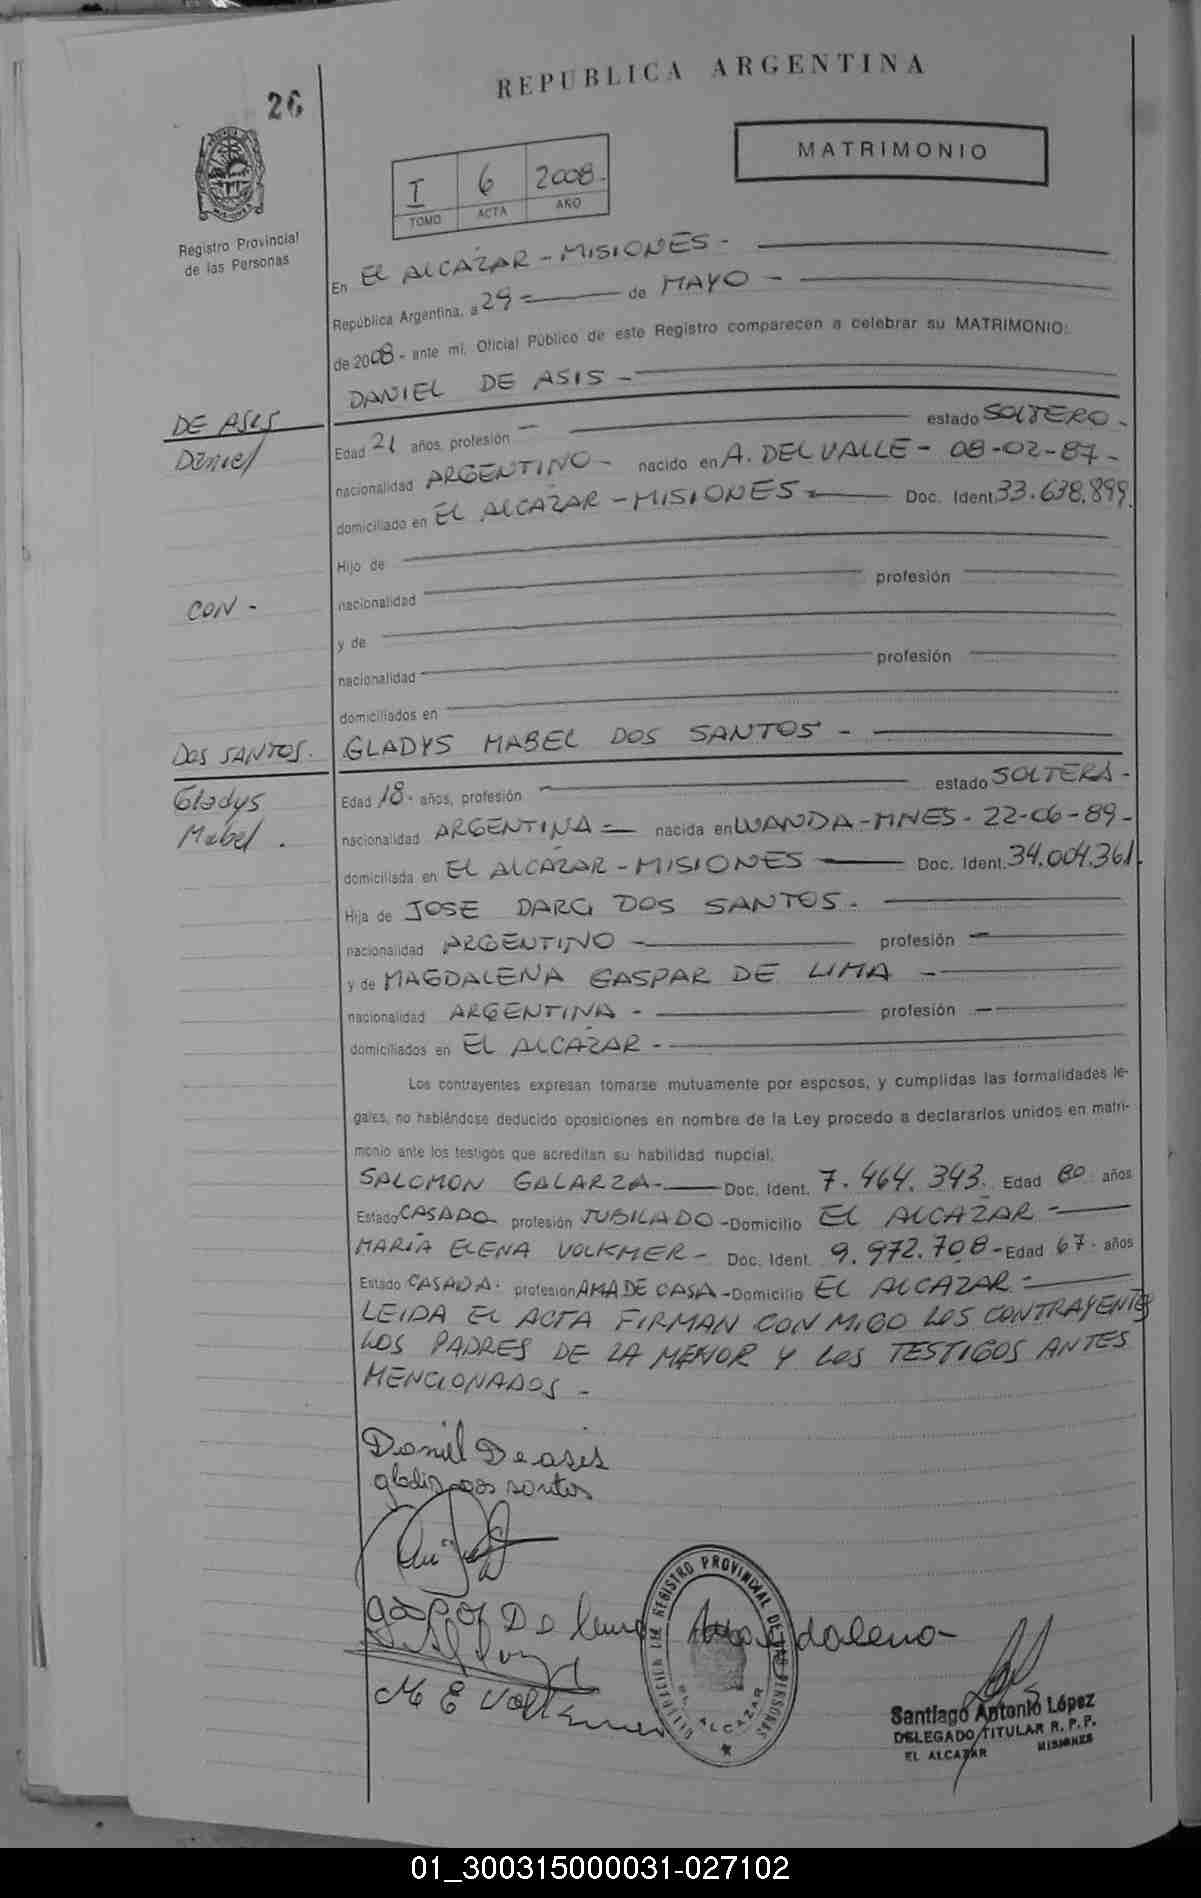 REPUBLICA ARGENTINA
26
MATRIMONIO
I 6 2008-
TOMO ACTA AÑO
Registro Provincial
de las Personas
En EL ALCÁZAR - MISIONES -
República Argentina, a 29 = de MAYO -
de 2008 - ante mí, Oficial Público de este Registro comparecen a celebrar su MATRIMONIO:
DANIEL DE ASIS -
DE ASIS
Daniel
Edad 21 años, profesión - estado SOLTERO -
nacionalidad ARGENTINO - nacido en A. DEL VALLE - 08-02-87 -
domiciliado en EL ALCÁZAR - MISIONES - Doc. Ident 33.638.899.
Hijo de
nacionalidad profesión
CON -
y de
nacionalidad profesión
domiciliados en
DOS SANTOS.
GLADYS MABEL DOS SANTOS -
Gladys
Mabel .
Edad 18 - años, profesión estado SOLTERA -
nacionalidad ARGENTINA = nacida en WANDA - MNES - 22-06-89 -
domiciliada en EL ALCÁZAR - MISIONES Doc. Ident. 34.004.361.
Hija de JOSE DARCI DOS SANTOS -
nacionalidad ARGENTINO - profesión -
y de MAGDALENA GASPAR DE LIMA -
nacionalidad ARGENTINA - profesión -
domiciliados en EL ALCÁZAR -
Los contrayentes expresan tomarse mutuamente por esposos, y cumplidas las formalidades le-
gales, no habiéndose deducido oposiciones en nombre de la Ley procedo a declararlos unidos en matri-
monio ante los testigos que acreditan su habilidad nupcial.
SALOMON GALARZA - Doc. Ident. 7.464.343. Edad 80 años
Estado CASADO profesión JUBILADO - Domicilio EL ALCÁZAR -
MARÍA ELENA VOLKMER - Doc. Ident. 9.972.708 - Edad 67 - años
Estado CASADA - profesión AMA DE CASA - Domicilio EL ALCÁZAR -
LEIDA EL ACTA FIRMAN CON MIGO LOS CONTRAYENTES
LOS PADRES DE LA MENOR Y LOS TESTIGOS ANTES
MENCIONADOS -
Daniel De asis
gladis dos santos
gaspar De lima Magdalena
M E Volkmer
REGISTRO PROVINCIAL DE LAS PERSONAS
EL ALCAZAR
Santiago Antonio López
DELEGADO TITULAR R. P. P.
EL ALCAZAR MISIONES
01_300315000031-027102